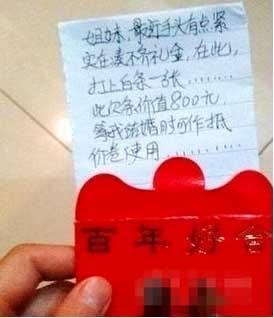 姐妹，最近手头有点紧
实在凑不齐礼金，在此，
打上白条一张........
此欠条价值800元，
等我结婚时可作抵
价卷使用........
百年好合